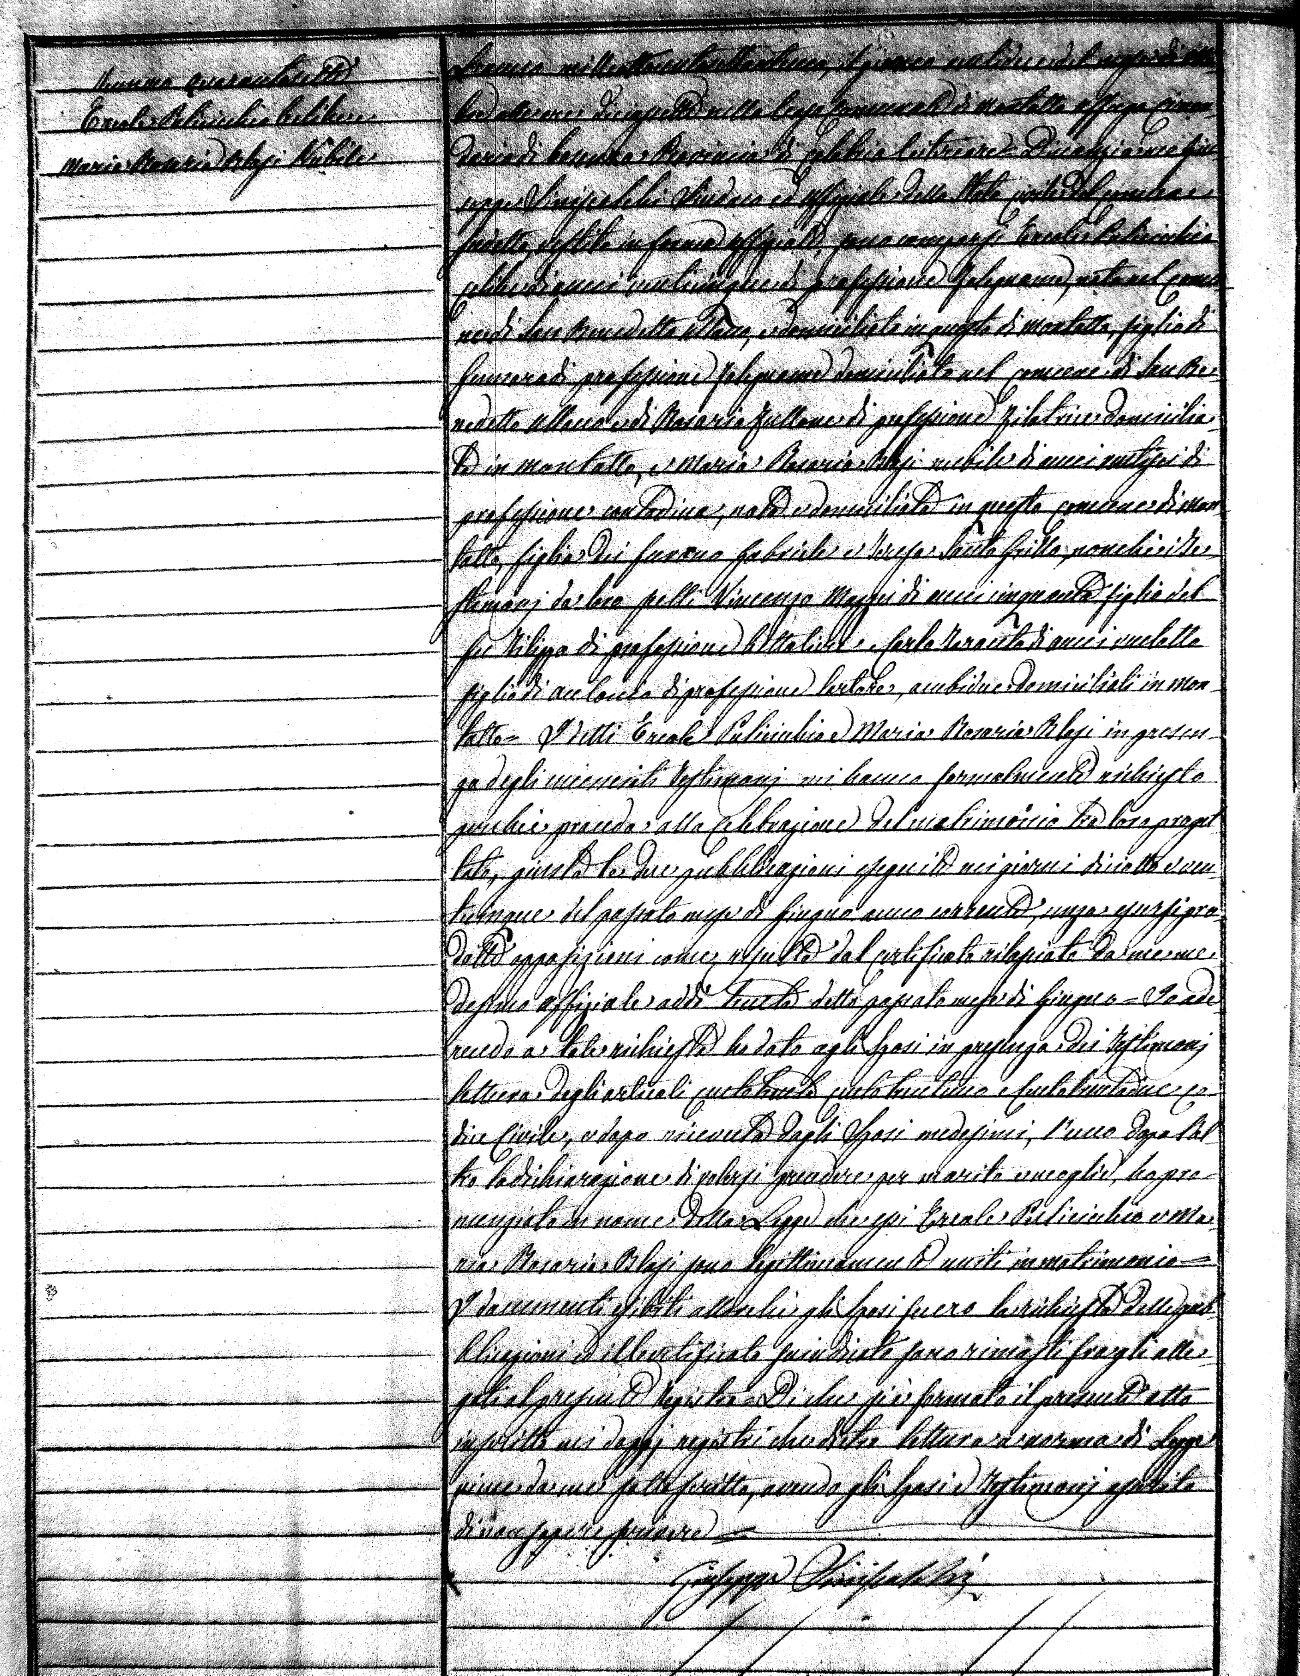 Numero quarantasette
Ercole Policicchio celibe e
Maria Rosaria Blasi Nubile
L'anno mille ottocento settantuno, il giorno del mese di
alle ore nella Casa Comunale di Montalto Uffugo Circon
dario di Cosenza Provincia di Calabria Citeriore = Dinanzi a me Giu
seppe Siniscalchi Sindaco ed Uffiziale dello Stato civile del comune
suddetto, vestito in forma uffiziale, sono comparsi Ercole Policicchio
celibe di anni venticinque di professione falegname, nato nel comu
ne di San Benedetto Ullano, e domiciliato in questo di Montalto, figlio di
di professione falegname domiciliato nel comune di San Be
nedetto Ullano e di Rosaria Fullone di professione filatrice domicilia
ta in Montalto, e Maria Rosaria Blasi nubile di anni ventisei di
professione contadina, nata e domiciliata in questo comune di Mon
talto, figlia dei furono Gabriele e Teresa nonchè i Te
stimonj da loro scelti Vincenzo di anni cinquanta figlio del
fu Filippo di professione e Carlo di anni ventotto
figlio di Antonio di professione Sartore, ambidue domiciliati in Mon
talto = I detti Ercole Policicchio e Maria Rosaria Blasi in presen
za degli Testimonj mi hanno formalmente richiesto
perchè proceda alla celebrazione del matrimonio tra loro proget
tato, giusta le due pubblicazioni eseguite nei giorni diciotto e ven
ticinque del passato mese di Giugno anno corrente, senza essersi pro
dotte opposizioni come risulta dal certificato rilasciato da me me
desimo uffiziale addì trenta detto passato mese di Giugno = Io ade
rendo a tale richiesta ho dato agli Sposi in presenza dei Testimonj
lettura degli articoli cento trenta cento trentuno e Cento trentadue Co
dice Civile, e dopo ricevuta dagli Sposi medesimi, l'uno dopo l'al
tro la dichiarazione di volersi prendere per marito e moglie, ho pro
nunziato in nome della Legge che essi Ercole Policicchio e Ma
ria Rosaria Blasi sono legittimamente uniti in matrimonio =
I documenti esibiti allorchè gli Sposi fecero la richiesta delle pub
blicazioni ed il certificato suindicato sono rimasti fra gli alle
gati al presente Registro = Di che si è formato il presente atto
inscritto nei doppj registri che dietro lettura a norma di Legge
viene da me sottoscritto, avendo gli Sposi e Testimonj asserito
di non sapere scrivere =
Giuseppe Siniscalchi